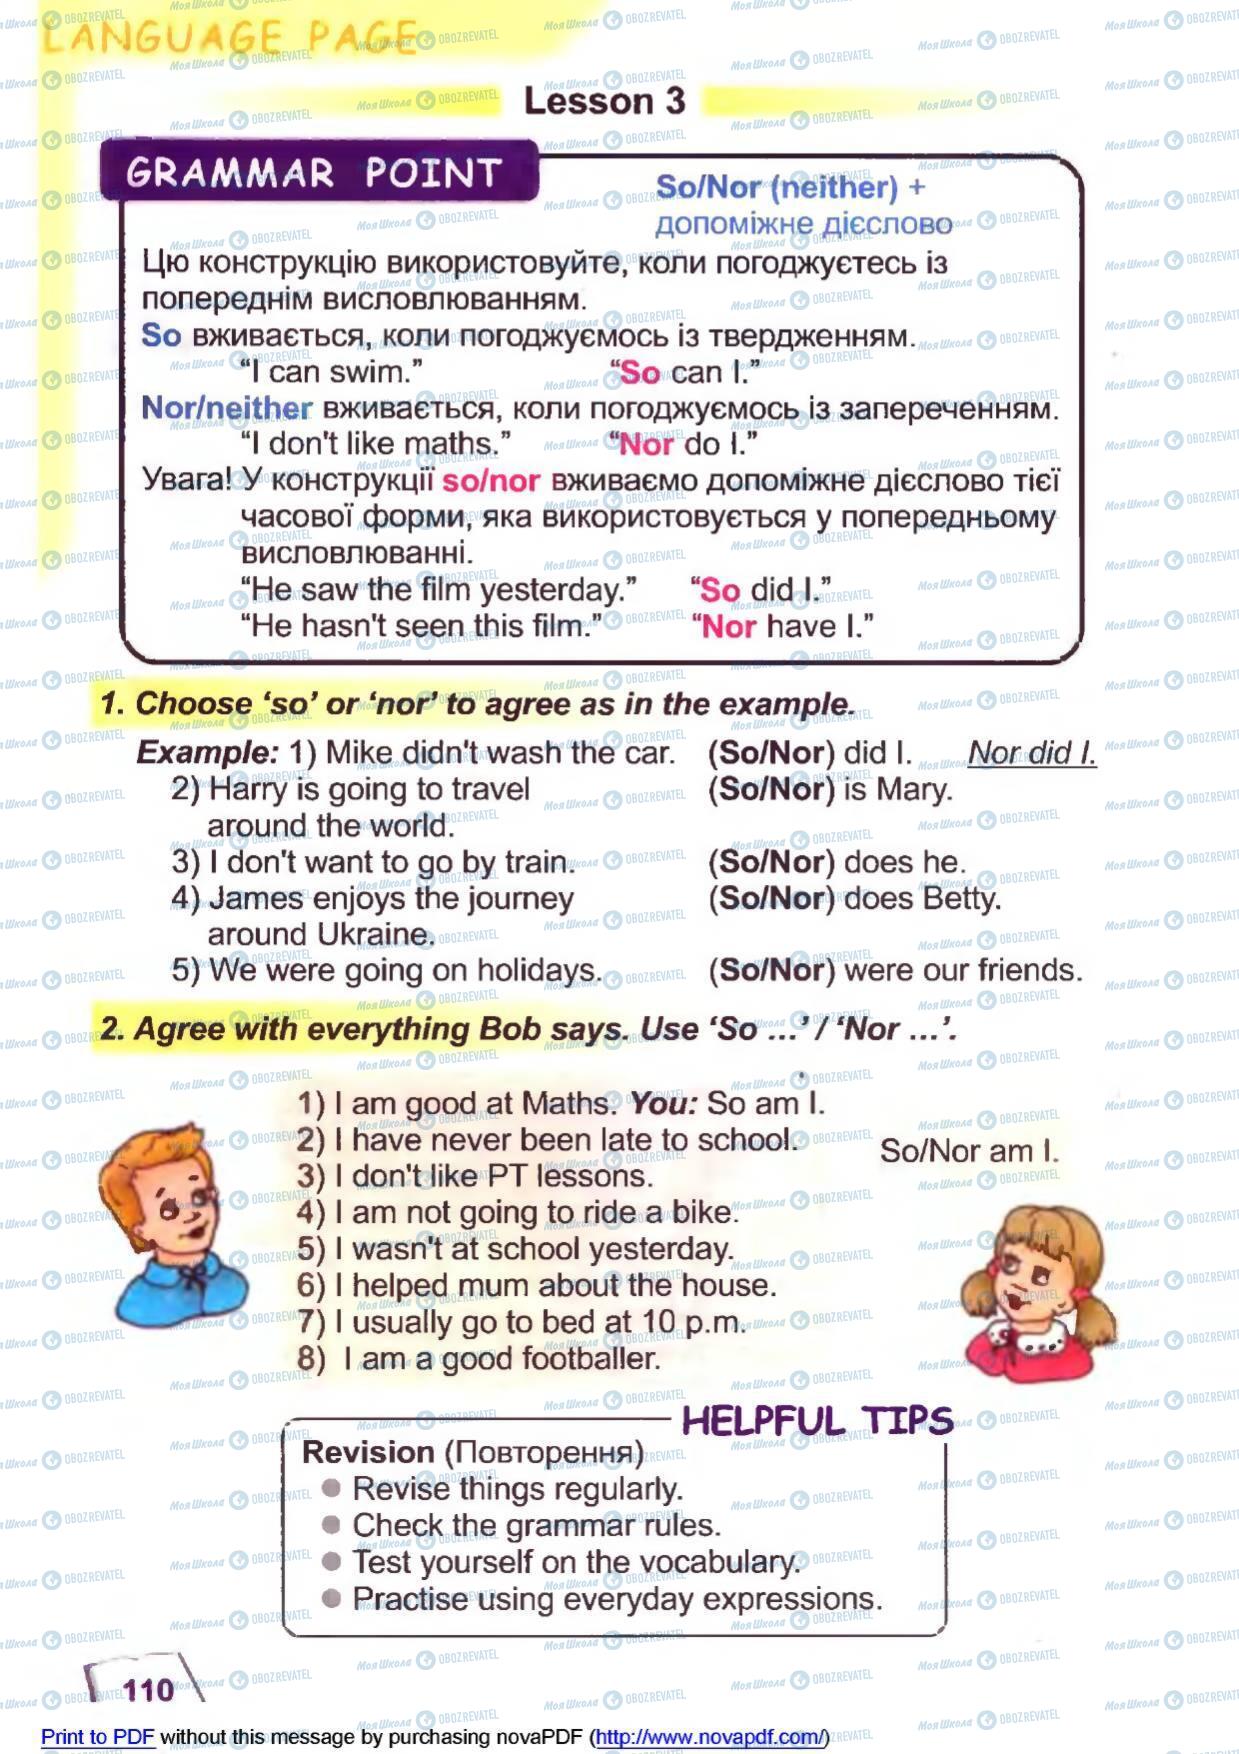 LANGUAGE PAGE
Lesson 3
GRAMMAR POINT
So/Nor (neither) +
допоміжне дієслово
Цю конструкцію використовуйте, коли погоджуєтесь із
попереднім висловлюванням.
So вживається, коли погоджуємось із твердженням.
“I can swim.” “So can I.”
Nor/neither вживається, коли погоджуємось із запереченням.
“I don't like maths.” “Nor do I.”
Увага! У конструкції so/nor вживаємо допоміжне дієслово тієї
часової форми, яка використовується у попередньому
висловлюванні.
“He saw the film yesterday.” “So did I.”
“He hasn't seen this film.” “Nor have I.”
1. Choose ‘so’ or ‘nor’ to agree as in the example.
Example: 1) Mike didn't wash the car. (So/Nor) did I. Nor did I.
2) Harry is going to travel (So/Nor) is Mary.
around the world.
3) I don't want to go by train. (So/Nor) does he.
4) James enjoys the journey (So/Nor) does Betty.
around Ukraine.
5) We were going on holidays. (So/Nor) were our friends.
2. Agree with everything Bob says. Use ‘So ...’ / ‘Nor ...’.
1) I am good at Maths. You: So am I.
2) I have never been late to school.
So/Nor am I.
3) I don't like PT lessons.
4) I am not going to ride a bike.
5) I wasn't at school yesterday.
6) I helped mum about the house.
7) I usually go to bed at 10 p.m.
8) I am a good footballer.
HELPFUL TIPS
Revision (Повторення)
Revise things regularly.
Check the grammar rules.
Test yourself on the vocabulary.
Practise using everyday expressions.
110
Print to PDF without this message by purchasing novaPDF (http://www.novapdf.com/)
МояШкола OBOZREVATEL